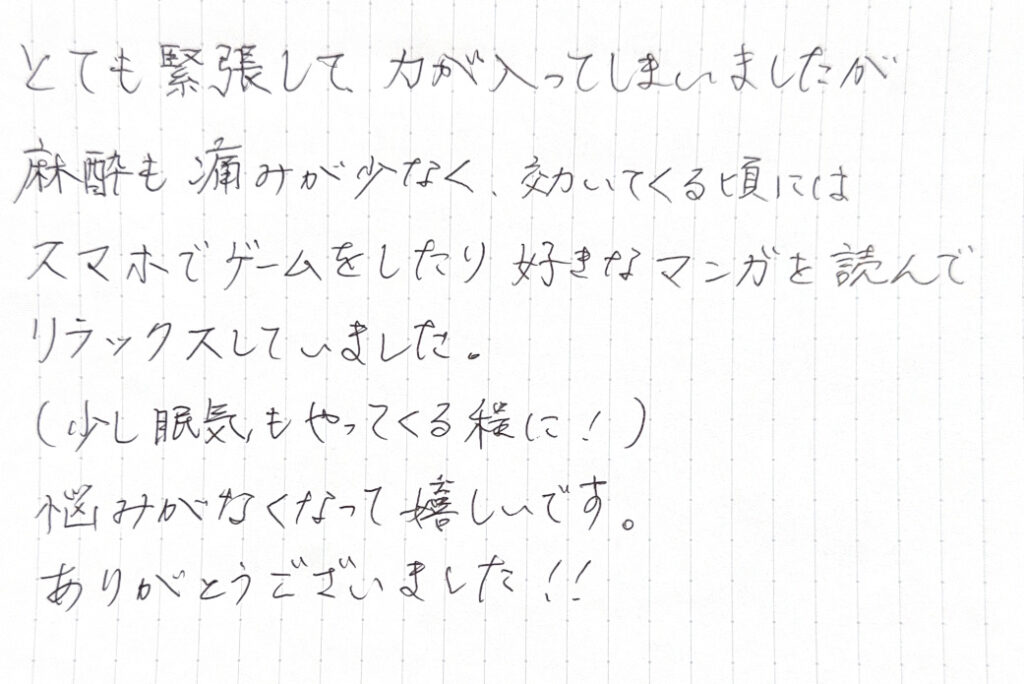 とても緊張して、力が入ってしまいましたが
麻酔も痛みが少なく、効いてくる頃には
スマホでゲームをしたり好きなマンガを読んで
リラックスしていました。
(少し眠気もやってくる程に!)
悩みがなくなって嬉しいです。
ありがとうございました!!